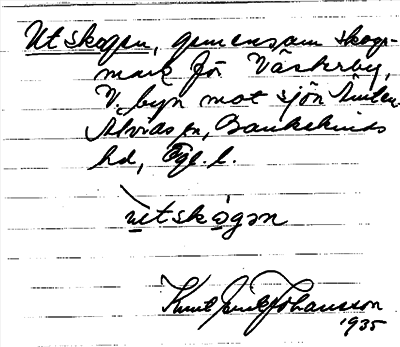 Utskogen, gemensam skogs-
mark för Västerby,
V. byn mot sjön
Alvids sn, Bankekinds
hd, Ögl. l.
ùtskògən
Knut Johansson
1935